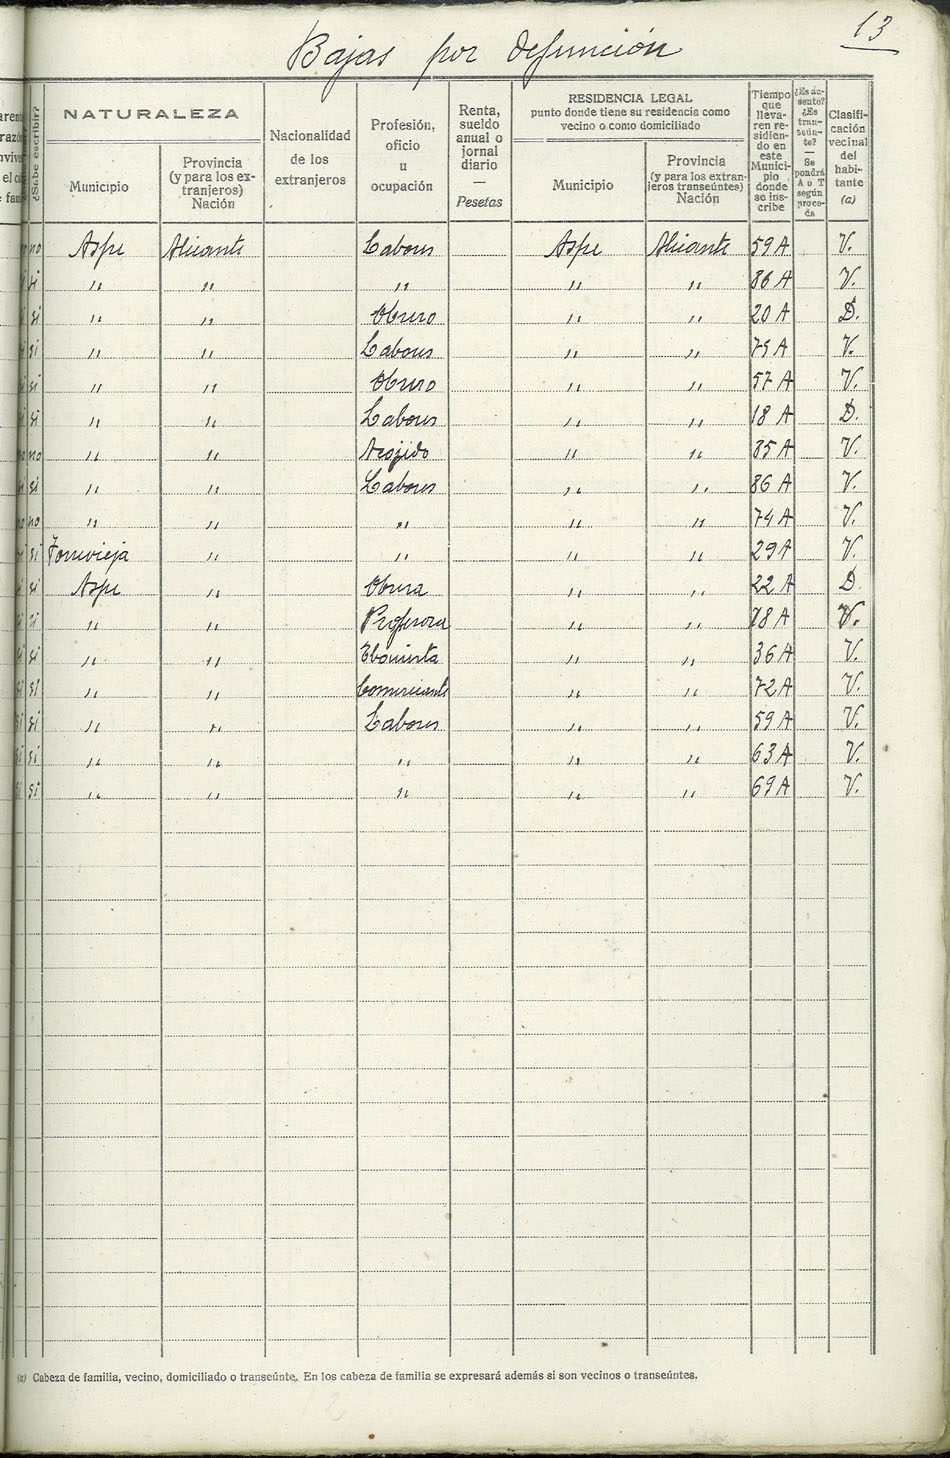 13
Bajas por defunción
¿Sabe escribir?
NATURALEZA
Municipio
Provincia
(y para los ex-
tranjeros)
Nación
Nacionalidad
de los
extranjeros
Profesión,
oficio
u
ocupación
Renta,
sueldo
anual o
jornal
diario
—
Pesetas
RESIDENCIA LEGAL
punto donde tiene su residencia como
vecino o como domiciliado
Municipio
Provincia
(y para los extran-
jeros transeúntes)
Nación
Tiempo
que
lleva-
ren re-
sidien-
do en
este
Munici-
pio
donde
se ins-
cribe
¿Es au-
sente?
¿Es
tran-
seún-
te?
—
Se
pondrá
A o T
según
proce-
da
Clasifi-
cación
vecinal
del
habi-
tante
(a)
no Aspe Alicante Labores Aspe Alicante 59 A V.
si " " " " " 86 A V.
si " " Obrero " " 20 A D.
si " " Labores " " 75 A V.
si " " Obrero " " 57 A V.
si " " Labores " " 18 A D.
no " " Acojido " " 85 A V.
si " " Labores " " 86 A V.
no " " " " " 74 A V.
si Torrevieja " " " " 29 A V.
si Aspe " Obrera " " 22 A D.
si " " Profesora " " 78 A V.
si " " Ebanista " " 36 A V.
si " " Comerciante " " 72 A V.
si " " Labores " " 59 A V.
si " " " " " 63 A V.
si " " " " " 69 A V.
(a) Cabeza de familia, vecino, domiciliado o transeúnte. En los cabeza de familia se expresará además si son vecinos o transeúntes.